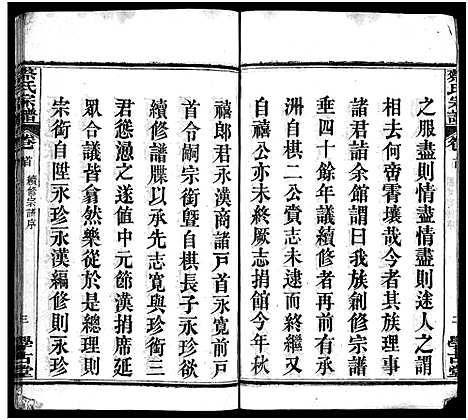 之服盡則情盡情盡則途人之謂
也相去何啻霄壤哉今者其族理事
諸君請諸余館謂曰我族創修宗譜
垂四十餘年議續修者再前有承
洲自棋二公賁志未逮而終繼又
公自禧公亦未終厥志捐館今年秋
禧郎君永漢商諸戶首永寬前戶
首令嗣宗銜暨自棋長子永珍欲
續修譜牒以承先志寬與珍銜三
君慫慂之遂値中元節漢捐席延
眾合議皆翕然樂從於是總理則
宗銜自陞永珍永漢編修則永珍
蔡氏宗譜
卷首
續修宗譜序
三
學古堂